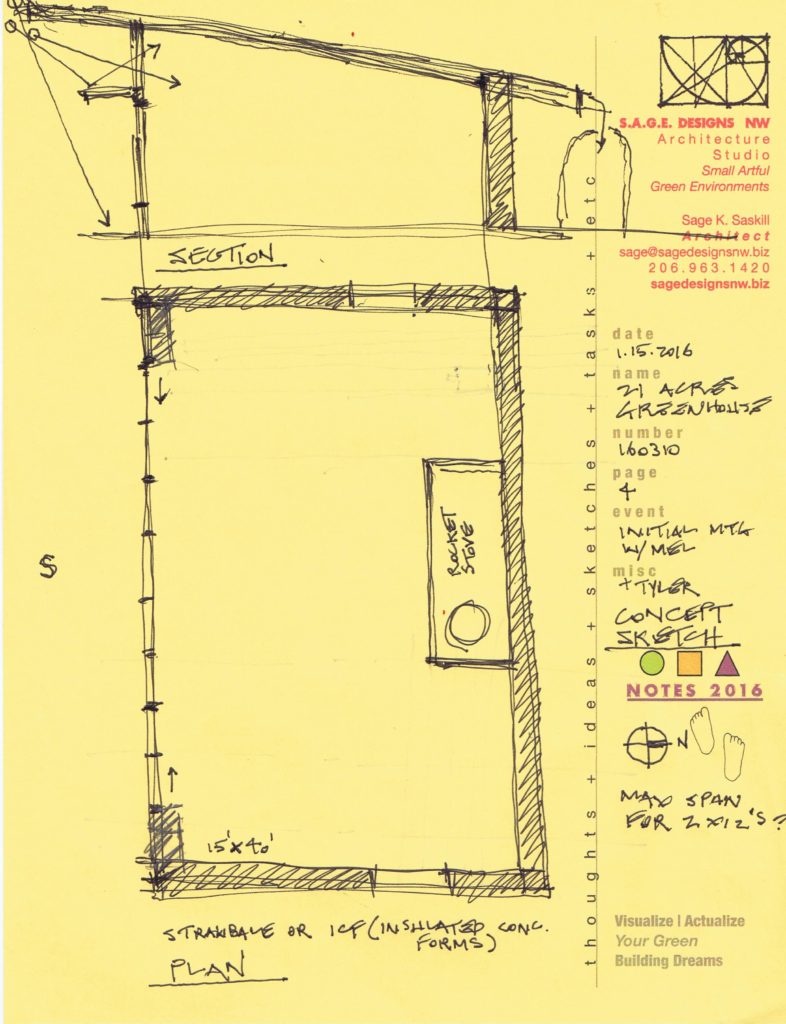 S.A.G.E. DESIGNS NW
Architecture
Studio
Small Artful
Green Environments
Sage K. Saskill
Architect
sage@sagedesignsnw.biz
206.963.1420
sagedesignsnw.biz
SECTION
date
1.15.2016
name
21 ACRES
GREENHOUSE
number
160310
page
4
event
INITIAL MTG
W/MEL
misc
+TYLER
CONCEPT
SKETCH
NOTES 2016
N
MAX SPAN
FOR 2x12's?
thoughts + ideas + sketches + tasks + etc
S
ROCKET
STOVE
15'x40'
STRAWBALE OR ICF (INSULATED CONC.
FORMS)
PLAN
Visualize | Actualize
Your Green
Building Dreams